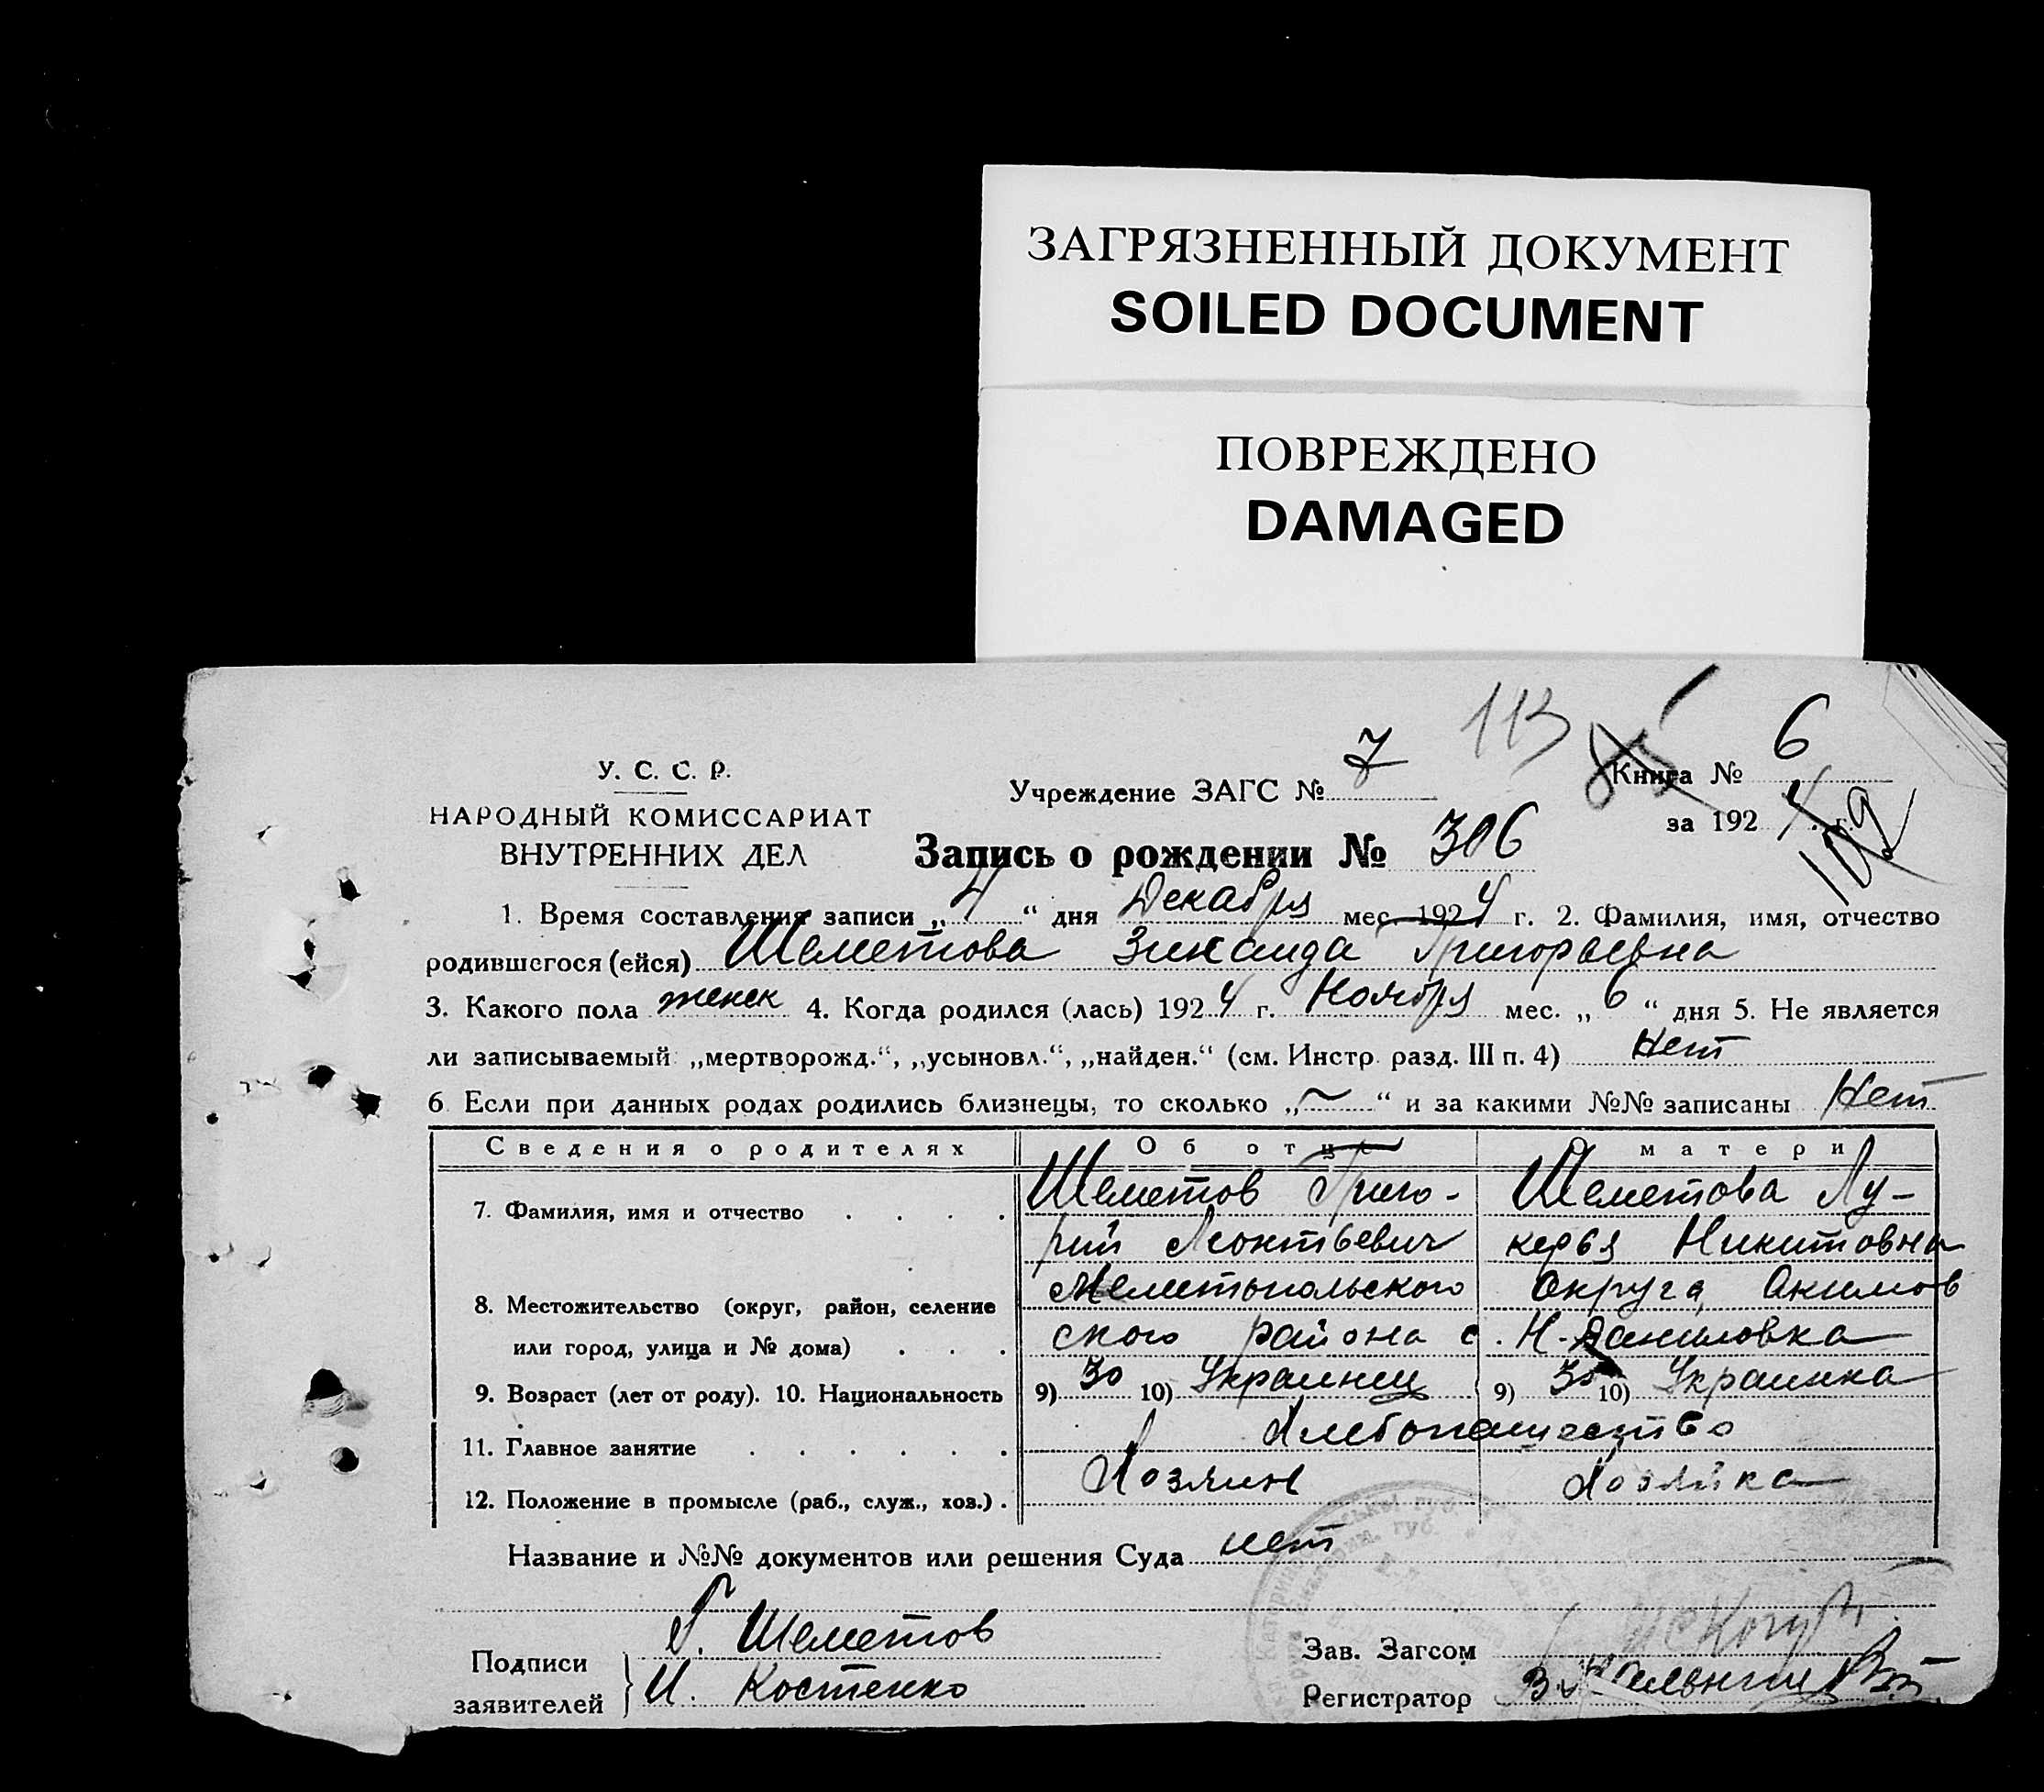 ЗАГРЯЗНЕННЫЙ ДОКУМЕНТ
SOILED DOCUMENT
ПОВРЕЖДЕНО
DAMAGED
113
У. С. С. Р.
НАРОДНЫЙ КОМИССАРИАТ
ВНУТРЕННИХ ДЕЛ
Учреждение ЗАГС № 7
Книга № 6
за 1924 г.
102
Запись о рождении № 306
1. Время составления записи „4“ дня Декабря мес. 1924 г. 2. Фамилия, имя, отчество
родившегося (ейся) Шеметова Зинаида Григорьевна
3. Какого пола женск 4. Когда родился (лась) 1924 г. Ноября мес. „6“ дня 5. Не является
ли записываемый „мертворожд.“, „усыновл.“, „найден.“ (см. Инстр. разд. III п. 4) Нет
6. Если при данных родах родились близнецы, то сколько „~“ и за какими №№ записаны Нет
Сведения о родителях Об отце О матери
7. Фамилия, имя и отчество . . . . Шеметов Григо- Шеметова Лу-
рий Леонтьевич керья Никитовна
8. Местожительство (округ, район, селение Мелитопольского Округа, Акимов
или город, улица и № дома) . . . ского района с. Н-Даниловка
9. Возраст (лет от роду). 10. Национальность 9) 30 10) Украинец 9) 30 10) Украинка
11. Главное занятие . . . . . Хлебопашество
12. Положение в промысле (раб., служ., хоз.) . Хозяин Хозяйка
Название и №№ документов или решения Суда нет
Подписи заявителей
Г. Шеметов
И. Костенко
Зав. Загсом
Регистратор